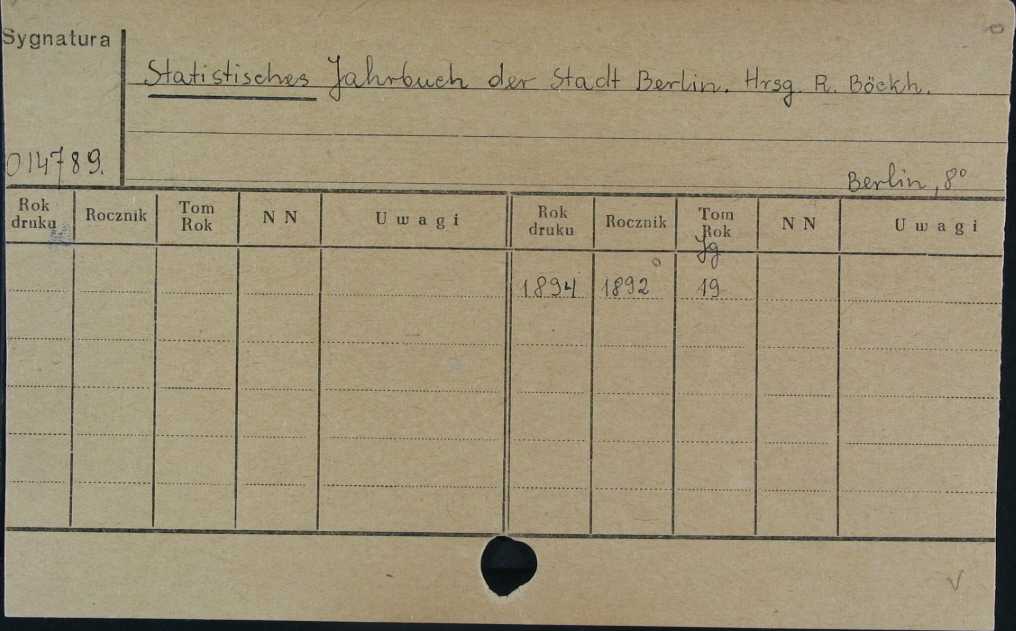 Sygnatura
Statistisches Jahrbuch der Stadt Berlin. Hrsg. R. Böckh.
014789.
Berlin, 8°
Rok druku Rocznik Tom Rok N N Uwagi Rok druku Rocznik Tom Rok N N Uwagi
Jg
1894 1892 19